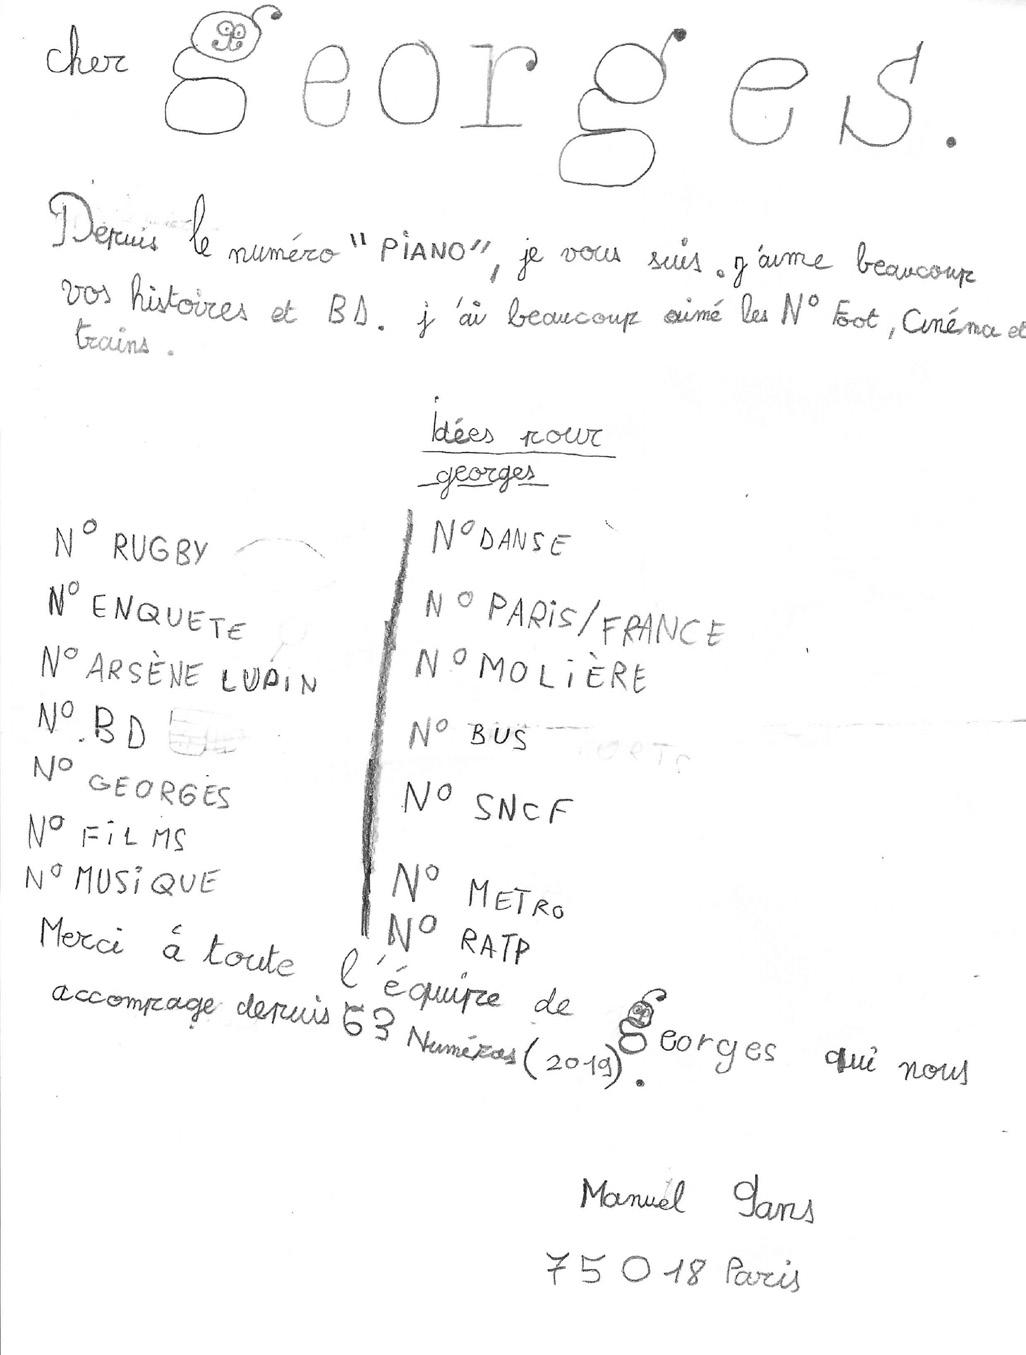 cher georges.
Depuis le numéro "PiANO", je vous suis. j'aime beaucoup
vos histoires et BD. j'ai beaucoup aimé les N° Foot, Cinéma et
trains.
Idées pour
georges
N° RUGBY
N° ENQUETE
N° ARSÈNE LUPiN
N° BD
N° GEORGES
N° FiLMS
N° MUSiQUE
N° DANSE
N° PARiS/FRANCE
N° MOLiÈRE
N° BUS
N° SNCF
N° METRO
N° RATP
Merci à toute l'équipe de georges qui nous
accompage depuis 63 Numéros (2019).
Manuel 9ans
75018 Paris